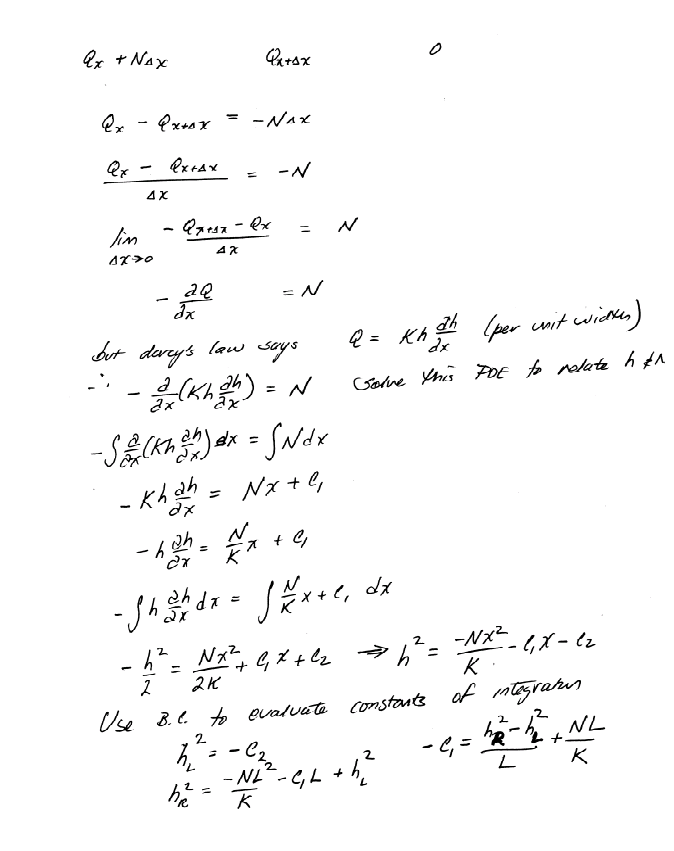 Qx + NΔx    Qx+Δx    0
Qx - Qx+Δx = -NΔx
(Qx - Qx+Δx)/Δx = -N
lim Δx→0 - (Qx+Δx - Qx)/Δx = N
- ∂Q/∂x = N
but darcy's law says    Q = Kh ∂h/∂x (per unit width)
∴ - ∂/∂x (Kh ∂h/∂x) = N    (solve this PDE to relate h &
- ∫ ∂/∂x (Kh ∂h/∂x) dx = ∫ N dx
- Kh ∂h/∂x = Nx + C₁
- h ∂h/∂x = N/K x + C₁
- ∫ h ∂h/∂x dx = ∫ N/K x + C₁ dx
- h²/2 = Nx²/2K + C₁x + C₂ ⇒ h² = -Nx²/K - C₁x - C₂
Use B.C. to evaluate constants of integration
h_L² = -C₂    -C₁ = (h_R² - h_L²)/L + NL/K
h_R² = -NL²/K - C₁L + h_L²